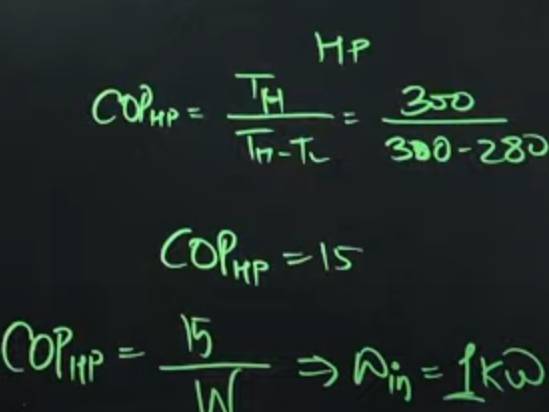 HP
COP_HP = T_H / (T_H - T_L) = 300 / (300 - 280)
COP_HP = 15
COP_HP = 15 / W ⇒ W_in = 1 kW